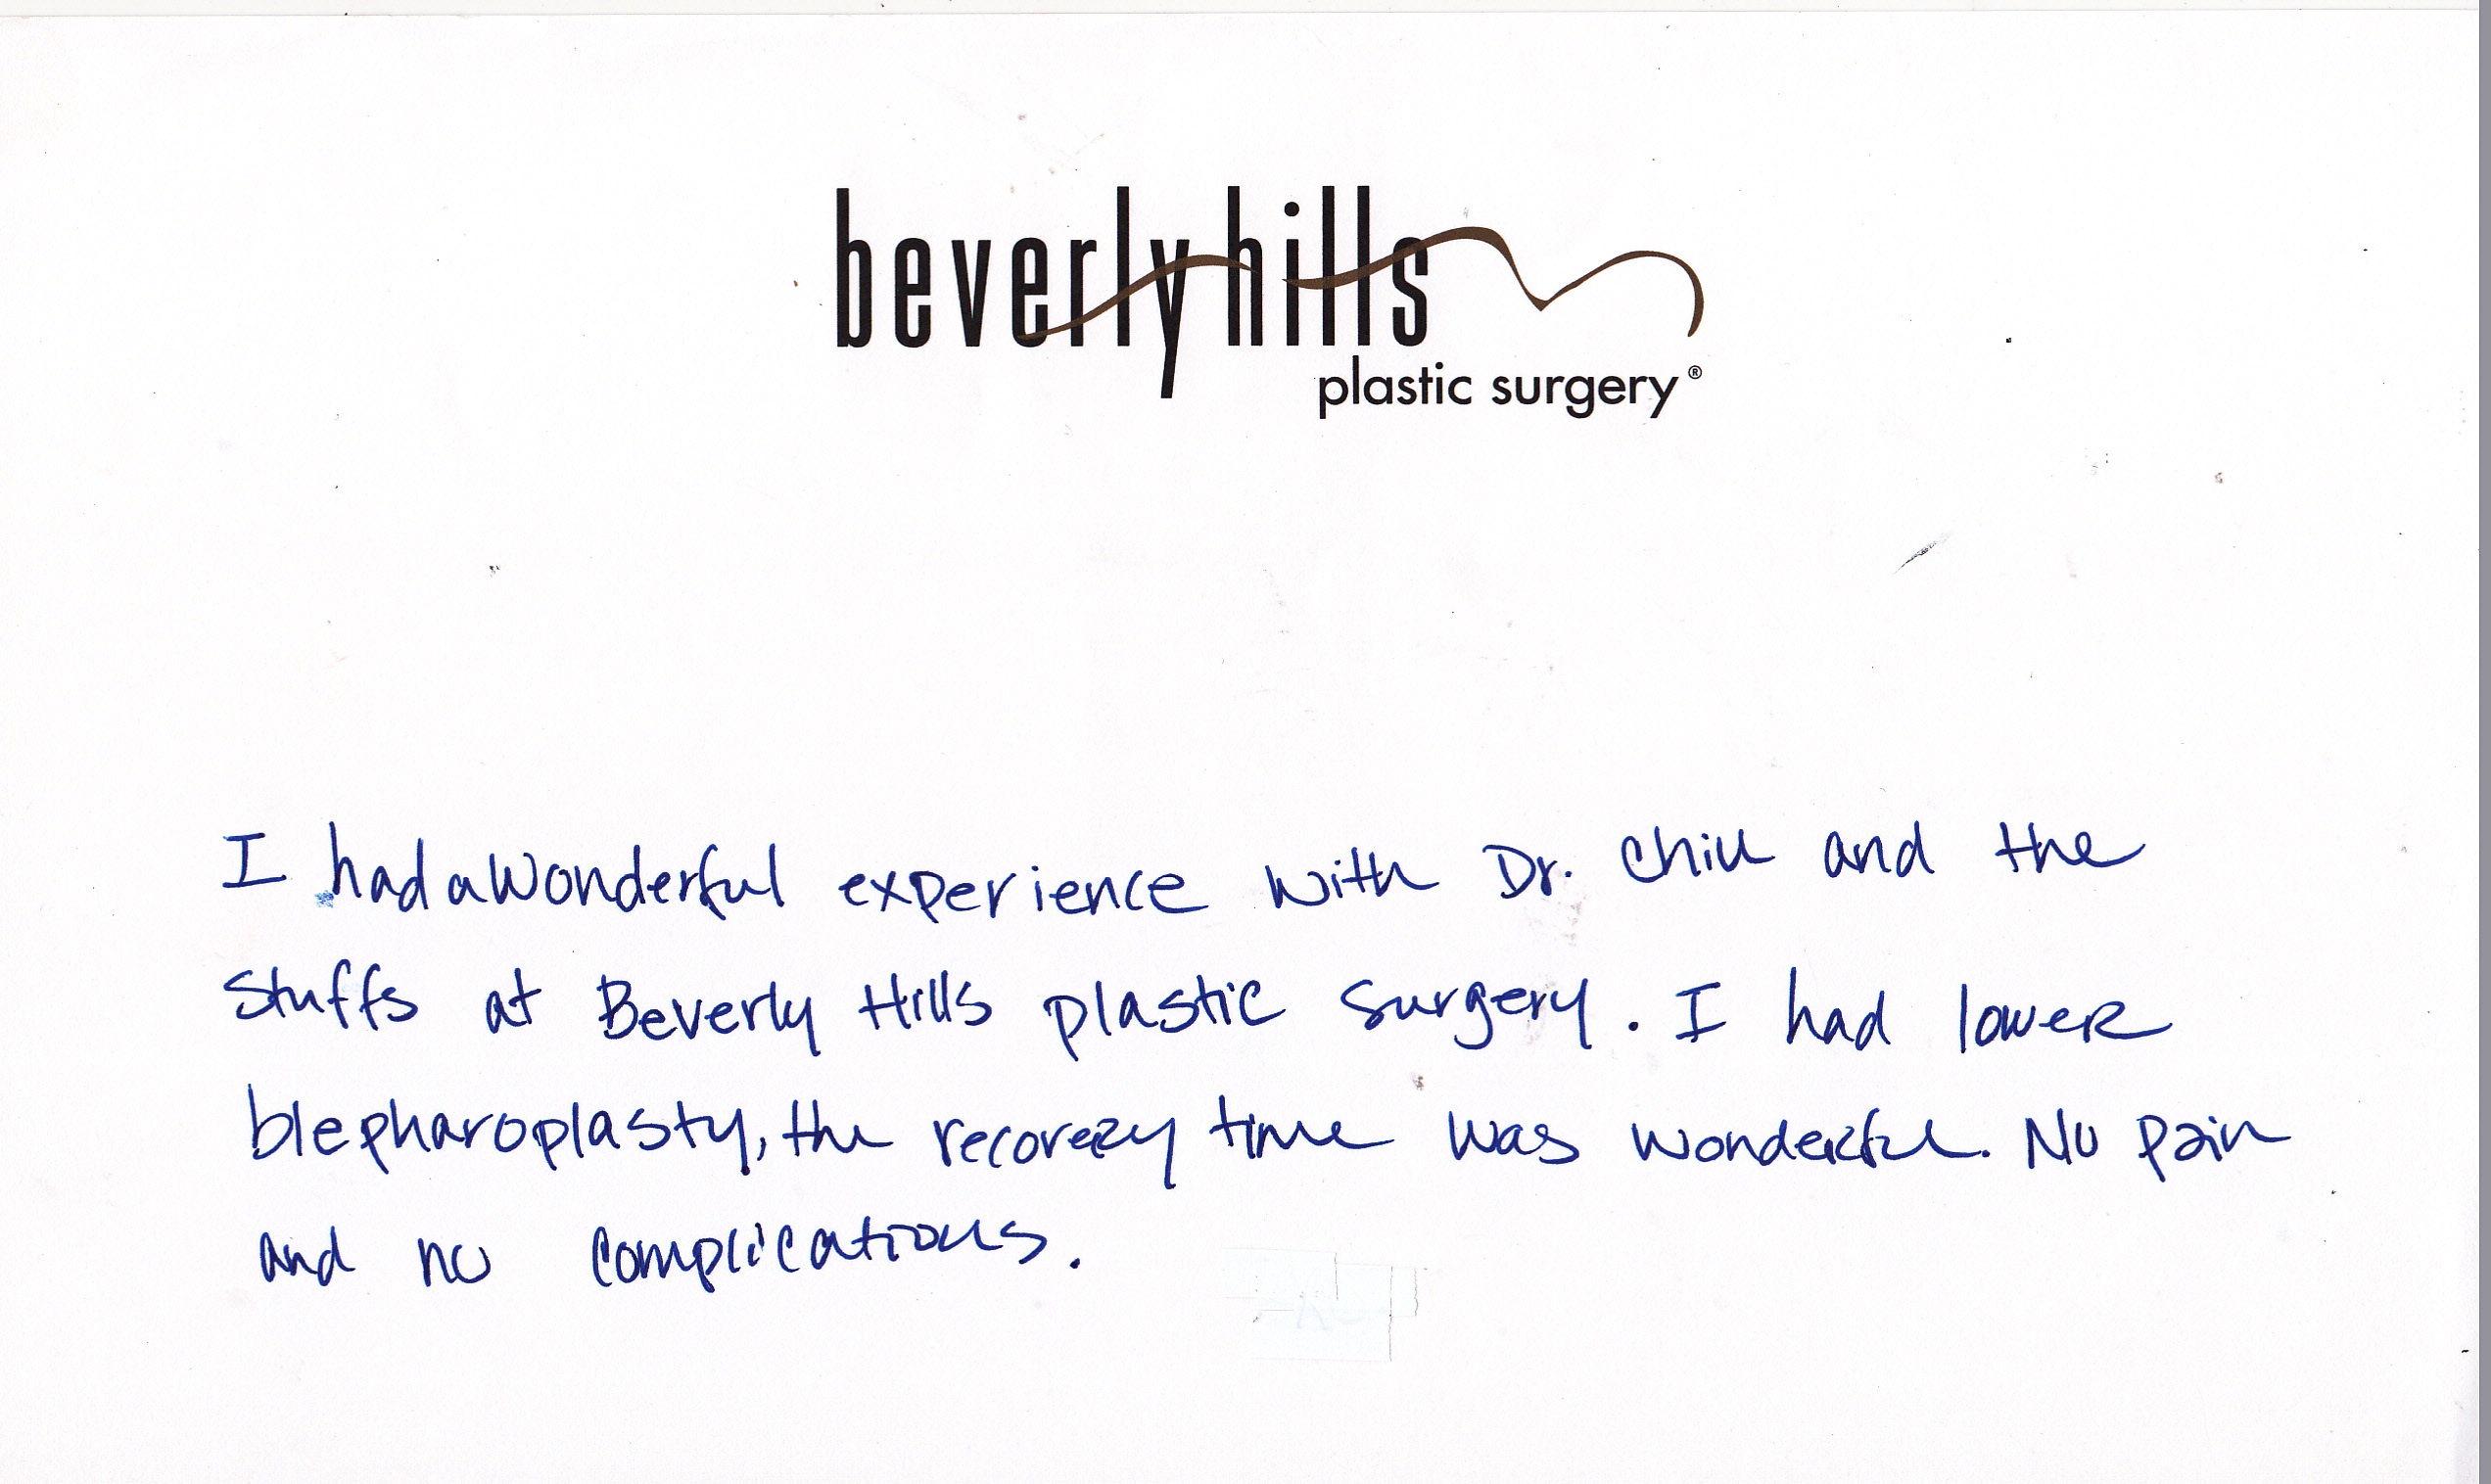 beverly hills
plastic surgery®
I had a wonderful experience with Dr. Chiu and the
stuffs at Beverly Hills plastic surgery. I had lower
blepharoplasty, the recovery time was wonderful. No pain
and no complications.